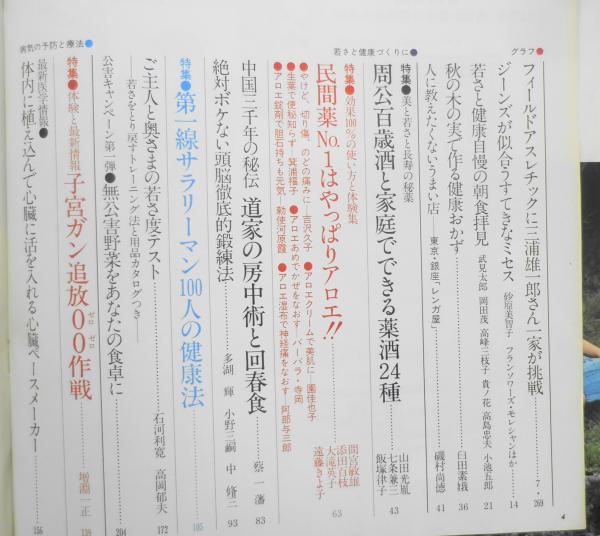 グラフ●
フィールドアスレチックに三浦雄一郎さん一家が挑戦……7・269
ジーンズが似合うすてきなミセス 砂原美智子 フランソワーズ・モレシャンほか……14
若さと健康自慢の朝食拝見 武見太郎 岡田茂 高峰三枝子 貴ノ花 高島忠夫 小池五郎……21
秋の木の実で作る健康おかず……臼田素娥 36
人に教えたくないうまい店 東京・銀座「レンガ屋」……磯村尚徳 41
若さと健康づくりに●
特集●美と若さと長寿の秘薬
周公百歳酒と家庭でできる薬酒24種……山田光胤 七条兼三 飯塚律子 43
特集●効果100%の使い方と体験集
民間薬No.1はやっぱりアロエ!!……間宮敏雄 添田百枝 大滝英子 遠藤きよ子 63
●やけど、切り傷、のどの痛みに―吉沢久子 ●アロエクリームで美肌に―園佳也子
●生葉で便秘知らず―箕浦福子 ●アロエあめでかぜをなおす―バーバラ・寺岡
●アロエ錠剤で胆石持ちも元気―勅使河原霞 ●アロエ湿布で神経痛をなおす―阿部与三郎
中国三千年の秘伝 道家の房中術と回春食……蔡一藩 83
絶対ボケない頭脳徹底的鍛練法……多湖輝 小野三嗣 中脩三 93
特集●第一線サラリーマン100人の健康法……105
ご主人と奥さまの若さ度テスト……石河利寛 高岡郁夫 172
若さをとり戻すトレーニング法と用品カタログつき
公害キャンペーン第一弾●無公害野菜をあなたの食卓に……204
病気の予防と療法●
特集●体験と最新情報 子宮ガン追放00作戦……増淵一正 138
ゼロ ゼロ
最新医学情報●
体内に植え込んで心臓に活を入れる心臓ペースメーカー……156
4